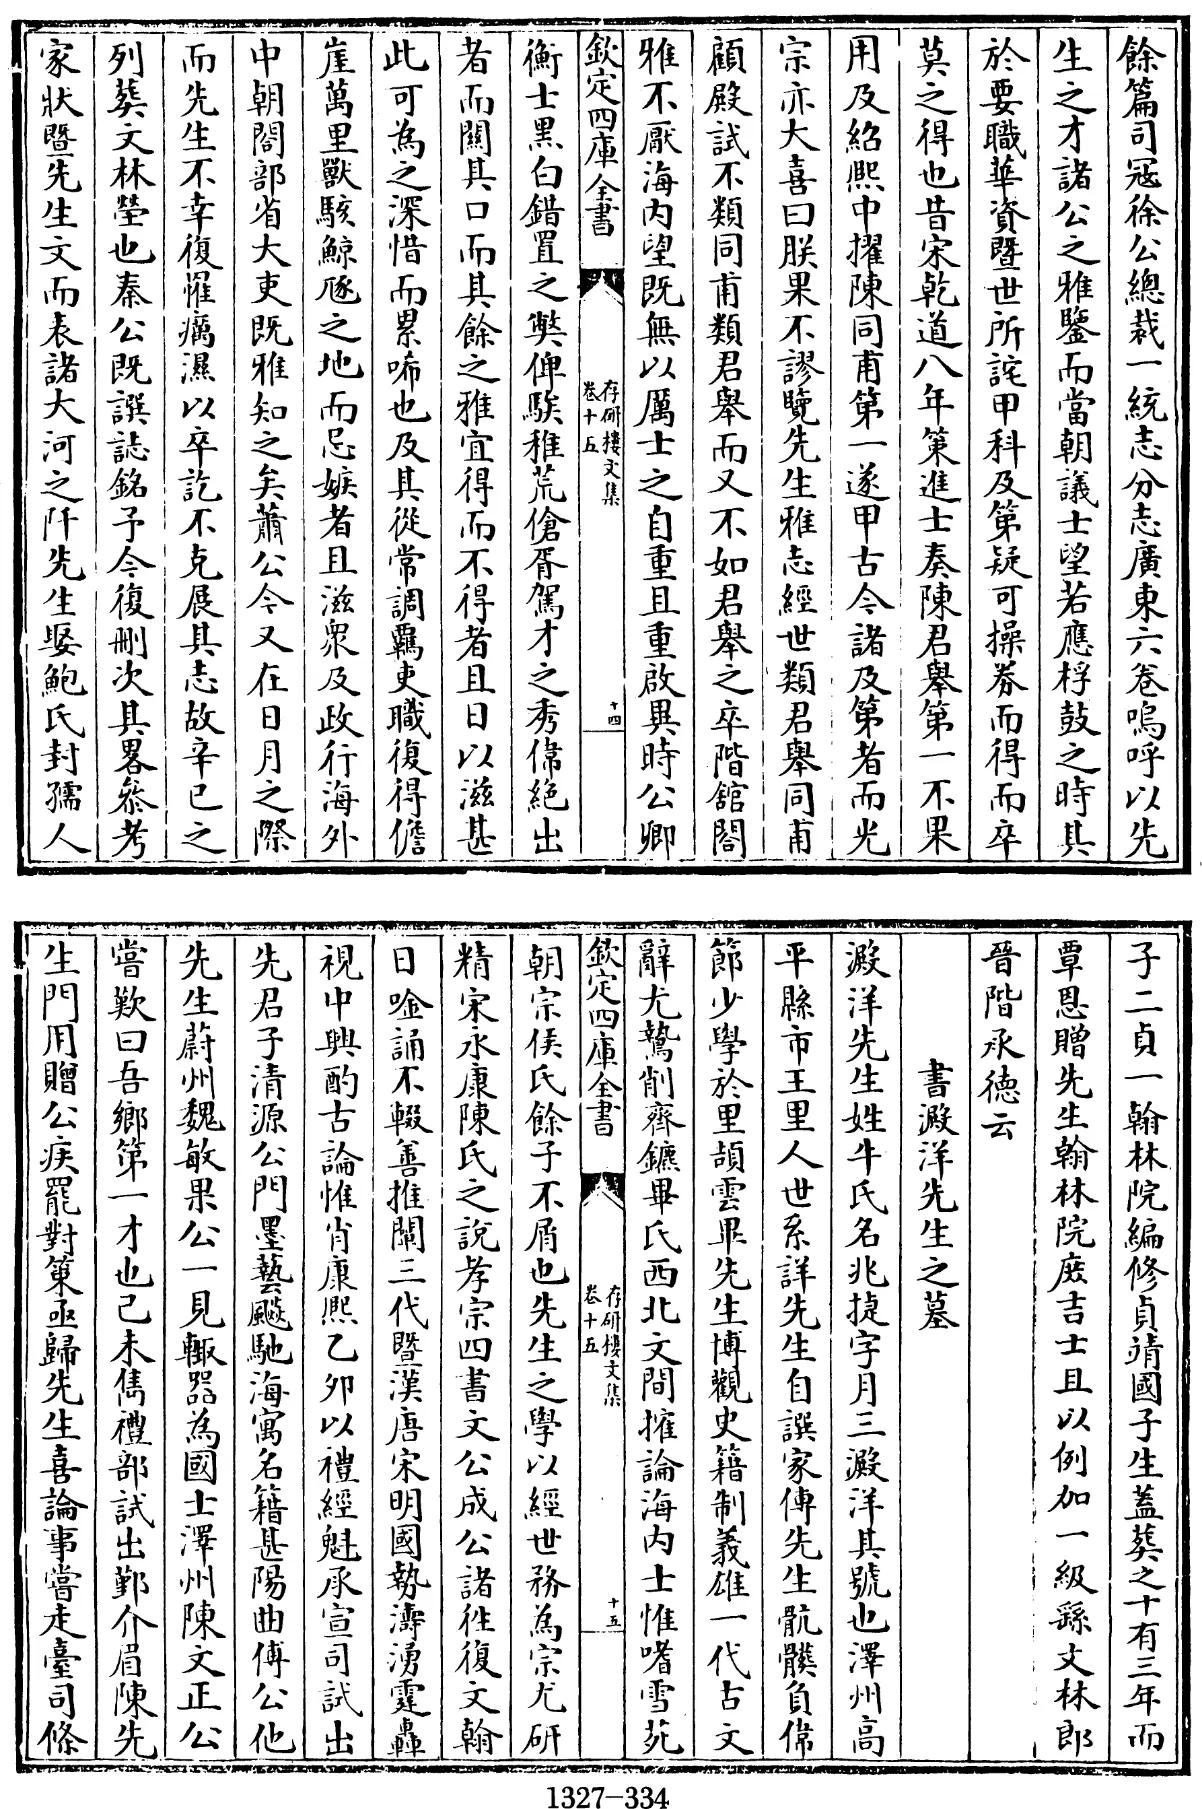 餘篇司冦徐公總裁一統志分志廣東六卷嗚呼以先
生之才諸公之雅鑒而當朝議士望若應桴鼓之時其
於要職華資暨世所詫甲科及第疑可操券而得而卒
莫之得也昔宋乾道八年策進士奏陳君舉第一不果
用及紹熙中擢陳同甫第一遂甲古今諸及第者而光
宗亦大喜曰朕果不謬覽先生雅志經世類君舉同甫
顧殿試不類同甫類君舉而又不如君舉之卒階舘閣
雅不厭海內望既無以厲士之自重且重啟異時公卿
欽定四庫全書
存研樓文集
卷十五
十四
衡士黑白錯置之弊俾騃稚荒傖胥駕才之秀偉絶出
者而關其口而其餘之雅宜得而不得者且日以滋甚
此可為之深惜而累唏也及其從常調羈吏職復得儋
崖萬里獸駭鯨豗之地而忌嫉者且滋衆及政行海外
中朝閣部省大吏既雅知之矣蕭公今又在日月之際
而先生不幸復懼癘濕以卒訖不克展其志故辛巳之
列葬文林塋也秦公既譔誌銘予今復刪次其畧叅考
家狀暨先生文而表諸大河之阡先生娶鮑氏封孺人
子二貞一翰林院編修貞靖國子生蓋葬之十有三年而
覃恩贈先生翰林院庶吉士且以例加一級繇文林郎
晉階承德云
書澱洋先生之墓
澱洋先生姓牛氏名兆捷字月三澱洋其號也澤州高
平縣市王里人世系詳先生自譔家傳先生骯髒負偉
節少學於里頡雲畢先生博觀史籍制義雄一代古文
辭尤鷙削齊鑣畢氏西北文間搉論海內士惟嗜雪苑
欽定四庫全書
存研樓文集
卷十五
十五
朝宗侯氏餘子不屑也先生之學以經世務為宗尤研
精宋永康陳氏之說孝宗四書文公成公諸徃復文翰
日唫誦不輟善推闡三代暨漢唐宋明國埶濤湧霆轟
視中興酌古論惟肖康熙乙卯以禮經魁承宣司試出
先君子清源公門墨藝飈馳海寓名籍甚陽曲傅公他
先生蔚州魏敏果公一見輙器為國士澤州陳文正公
嘗歎曰吾鄉第一才也己未雋禮部試出鄞介眉陳先
生門用贈公疾罷對策亟歸先生喜論事嘗走臺司條
1327-334